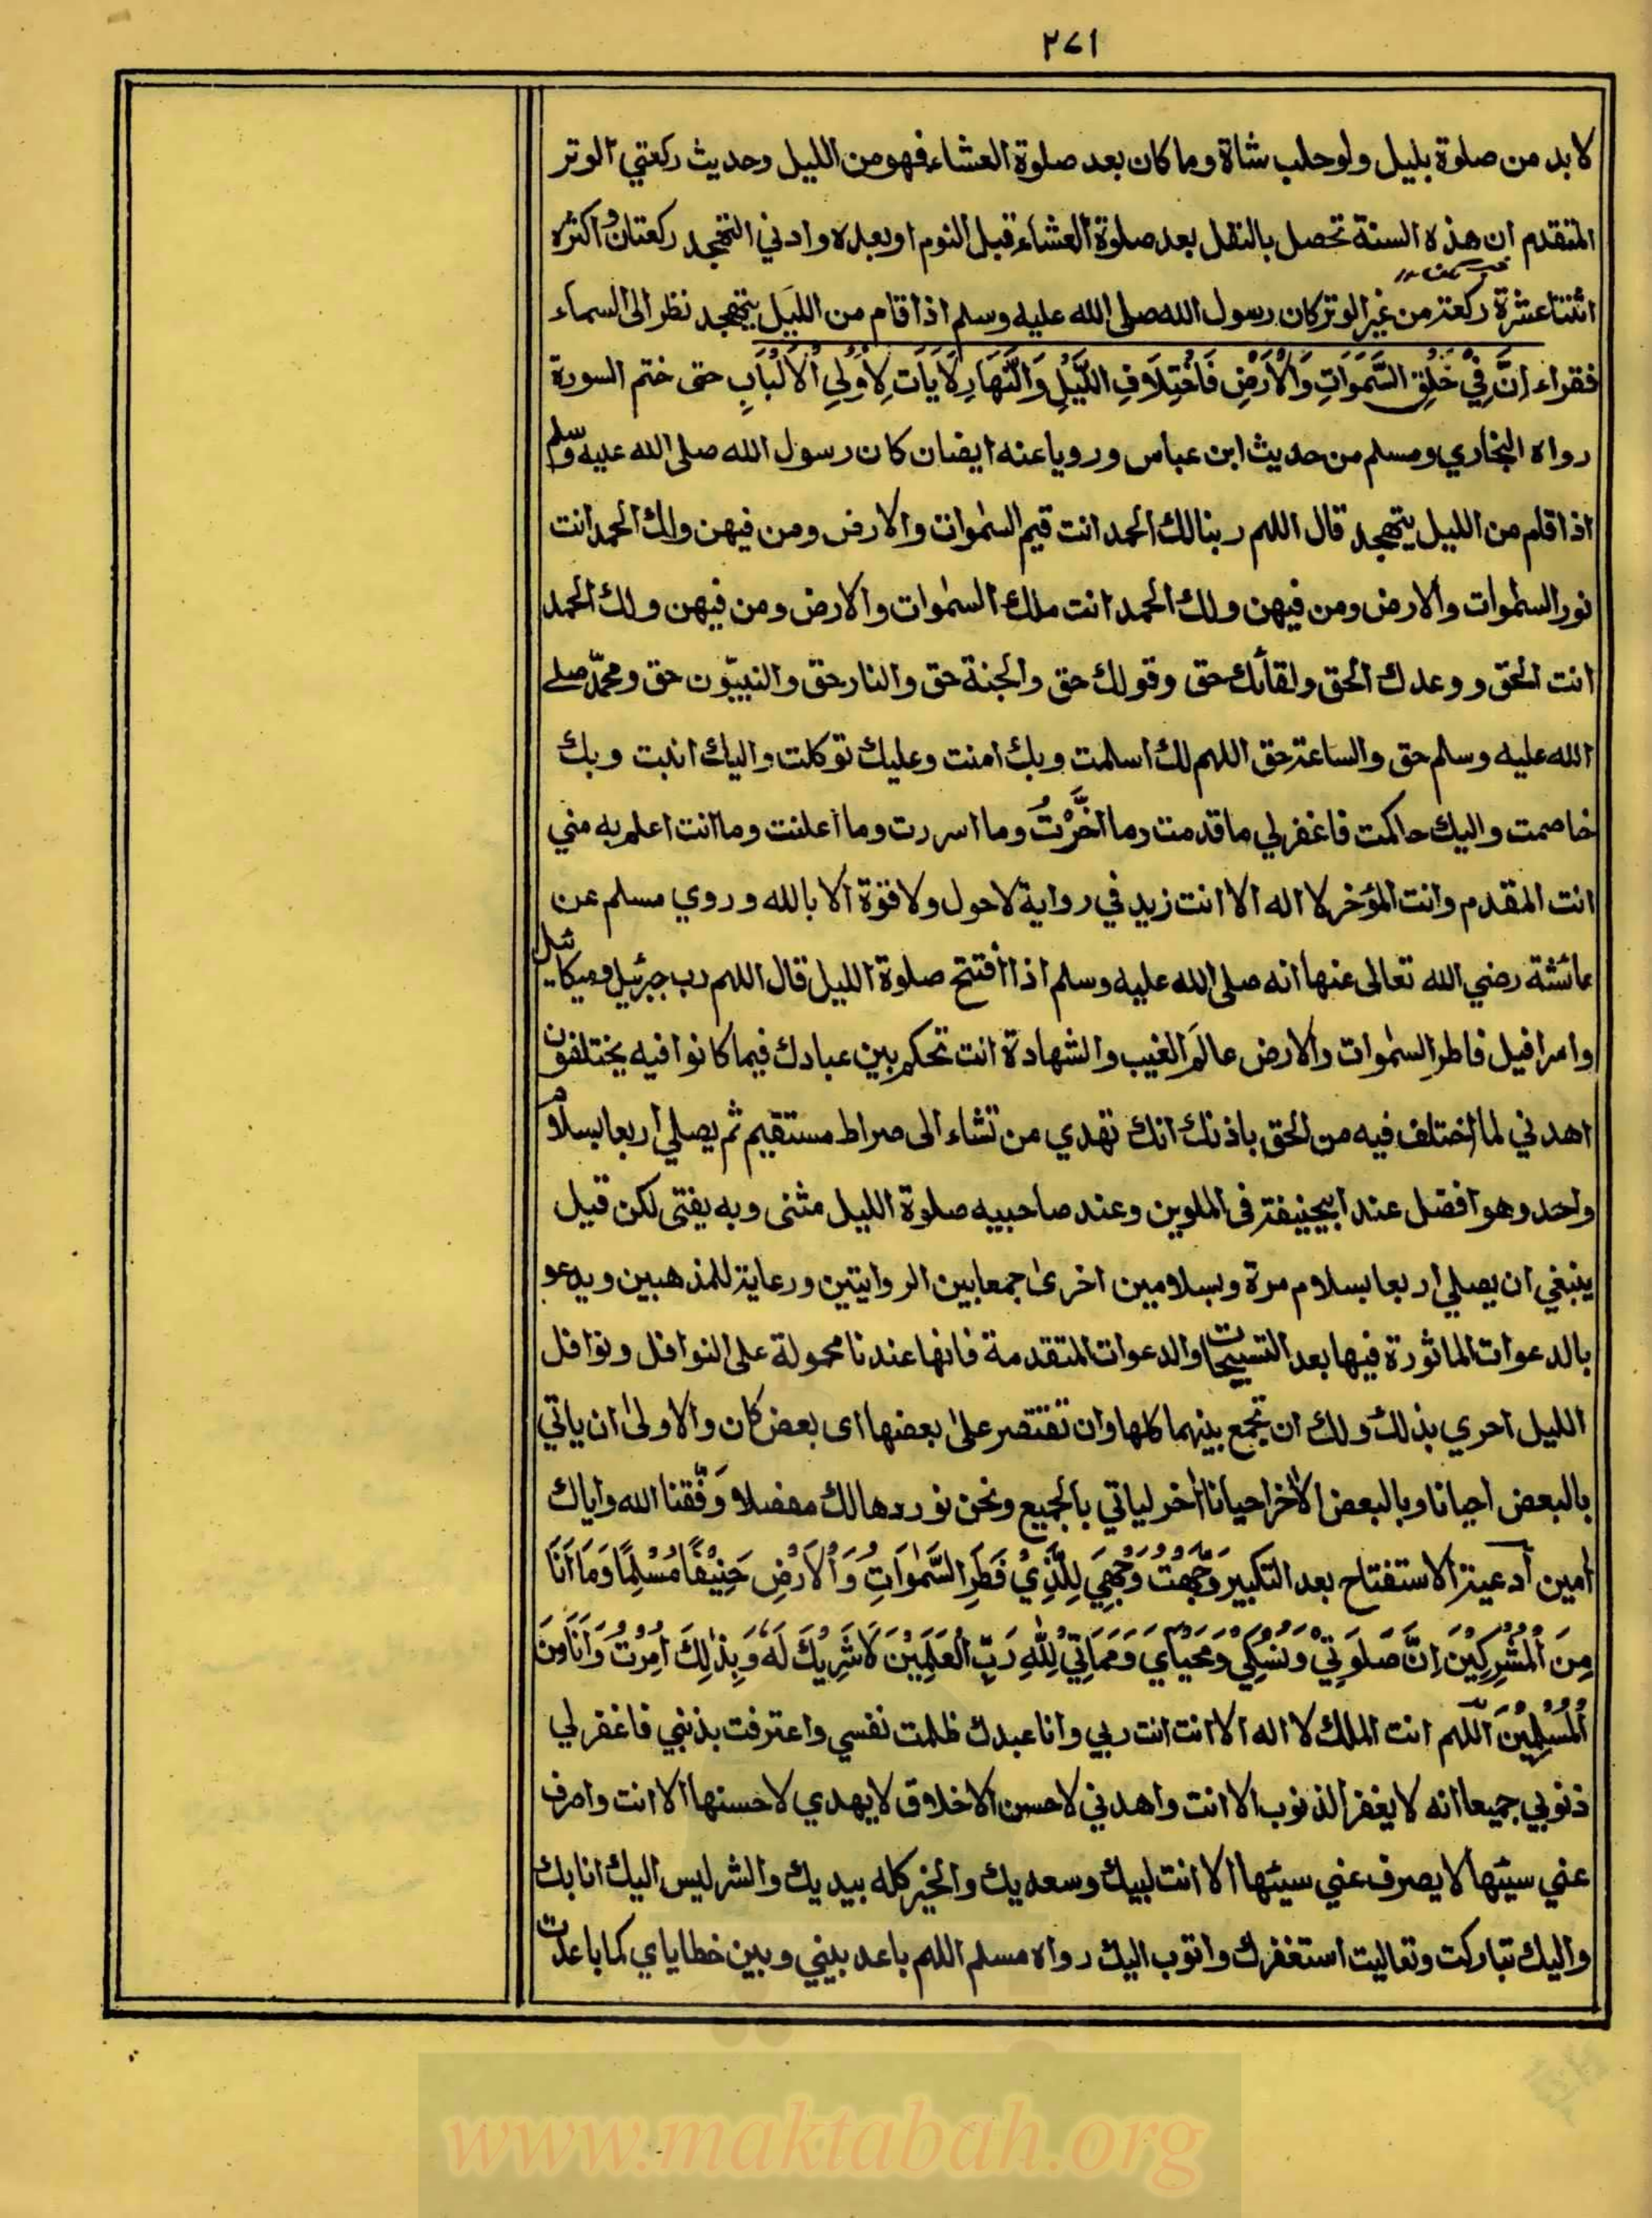 ٢٧١
لا بد من صلوة بليل ولو حلب شاة وما كان بعد صلوة العشاء فهو من الليل وحديث ركعتي الوتر
المتقدم ان هذه السنة تحصل بالنفل بعد صلوة العشاء قبل النوم او بعده وادني التهجد ركعتان واكثره
اثنتا عشرة ركعة من غير الوتر كان رسول الله صلى الله عليه وسلم اذا قام من الليل يتهجد نظر الى السماء
فقراء اِنَّ فِيْ خَلْقِ السَّمَوَاتِ وَالْاَرْضِ فَاخْتِلَافِ اللَّيْلِ وَالنَّهَارِ لَاٰيَاتٍ لِاُولِي الْاَلْبَابِ حتى ختم السورة
رواه البخاري ومسلم من حديث ابن عباس ورويا عنه ايضان كان رسول الله صلى الله عليه وسلم
اذا قام من الليل يتهجد قال اللهم ربنا لك الحمد انت قيم السمٰوات والارض ومن فيهن ولك الحمد انت
نور السمٰوات والارض ومن فيهن ولك الحمد انت ملك السمٰوات والارض ومن فيهن ولك الحمد
انت الحق ووعدك الحق ولقائك حق وقولك حق والجنة حق والنار حق والنبيّون حق ومحمّد صلے
الله عليه وسلم حق والساعة حق اللهم لك اسلمت وبك امنت وعليك توكلت واليك انبت وبك
خاصمت واليك حاكمت فاغفر لي ما قدمت وما اخَّرْتُ وما اسررت وما اعلنت وما انت اعلم به مني
انت المقدم وانت المؤخر لا اله الا انت زيد في رواية لاحول ولا قوة الا بالله وروي مسلم عن
عائشة رضي الله تعالى عنها انه صلى الله عليه وسلم اذا افتتح صلوة الليل قال اللهم رب جبرئيل وميكائيل
واسرافيل فاطر السمٰوات والارض عالم الغيب والشهادة انت تحكم بين عبادك فيما كانوا فيه يختلفون
اهدني لما اختلف فيه من الحق باذنك انك تهدي من تشاء الى صراط مستقيم ثم يصلي اربعا بسلام
واحد وهو افضل عند ابيحنيفة في الملوين وعند صاحبيه صلوة الليل مثنى وبه يفتى لكن قيل
ينبغي ان يصلي اربعا بسلام مرة وبسلامين اخرىٰ جمعا بين الروايتين ورعاية للمذهبين ويدعو
بالدعوات الماثورة فيها بعد التسبيحات والدعوات المتقدمة فانها عندنا محمولة على النوافل ونوافل
الليل احري بذلك ولك ان تجمع بينهما كلها وان تقتصر علىٰ بعضها اى بعض كان والاولىٰ ان ياتي
بالبعض احيانا وبالبعض الاخر احيانا اخر لياتي بالجميع ونحن نوردها لك مفصلا وَفَّقنا الله واياك
اٰمين ادعية الاستفتاح بعد التكبير وَجَّهْتُ وَجْهِيَ لِلَّذِيْ فَطَرَ السَّمٰوَاتِ وَالْاَرْضَ حَنِيْفًا مُسْلِمًا وَمَا اَنَا
مِنَ الْمُشْرِكِيْنَ اِنَّ صَلَوتِيْ وَنُسُكِيْ وَمَحْيَايَ وَمَمَاتِيْ لِلّٰهِ رَبِّ الْعٰلَمِيْنَ لَا شَرِيْكَ لَهٗ وَبِذٰلِكَ اُمِرْتُ وَاَنَا مِنَ
الْمُسْلِمِيْنَ اَللّهم انت الملك لا اله الا انت انت ربي وانا عبدك ظلمت نفسي واعترفت بذنبي فاغفر لي
ذنوبي جميعا انه لا يغفر الذنوب الا انت واهدني لاحسن الاخلاق لا يهدي لاحسنها الا انت واصرف
عني سيئها لا يصرف عني سيئها الا انت لبيك وسعديك والخير كله بيديك والشر ليس اليك انا بك
واليك تباركت وتعاليت استغفرك واتوب اليك رواه مسلم اللهم باعد بيني وبين خطاياي كما باعدت
www.maktabah.org